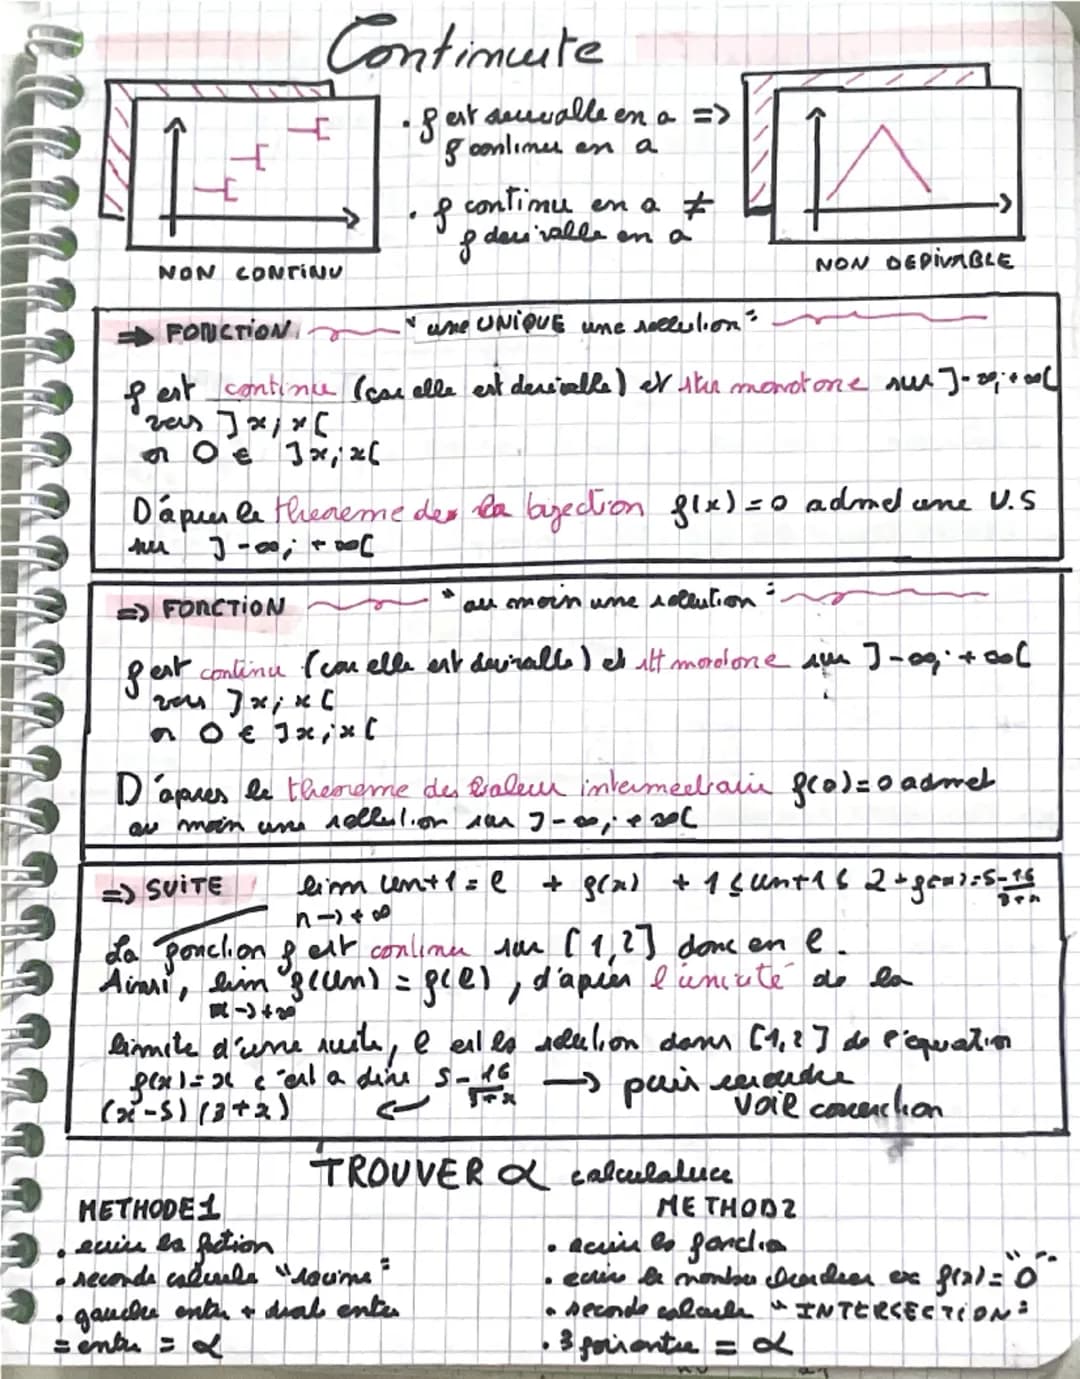 Continuite
• f est derivable en a =>
f continu en a
• f continu en a ≠
f derivable en a
NON CONTINU
NON DERIVABLE
=> FONCTION "une UNIQUE une sollution"
f est continue (car elle est derivable) et stt monotone sur ]-∞;+∞[
vers ]x;x[
or 0 ∈ ]x;x[
D'apres le theoreme des la bijection f(x)=0 admet une U.S
sur ]-∞;+∞[
=> FONCTION "au moin une solution"
f est continu (car elle est derivalle) et stt monotone sur ]-∞;+∞[
vers ]x;x[
or 0 ∈ ]x;x[
D'apres le theoreme des valeur intermediair f(0)=0 admet
au moin une sollution sur ]-∞;+∞[
=> SUITE lim un+1 = l + f(x) + 1≤un+1≤2 + f(x)=5-16/3+x
n->+∞
La fonction f est continu sur [1,2] donc en l.
Ainsi, lim f(un) = f(l), d'apres l'unicité de la
n->+∞
limite d'une suite, l est la solution dans [1,2] de l'equation
f(x)=x c'est a dire 5-16/3+x -> puis resoudre
(x-5)(3+x) voir correction
TROUVER α calculatrice
METHODE 1
• ecrire la fction
• seconde calcule "racine"
• gauche entre + droit entre
= entre = α
METHOD 2
• ecrire la fonctio
• ecrire le nombre chercher ex f(x)="0"
• seconde calcule "INTERSECTION"
• 3 foi entre = α